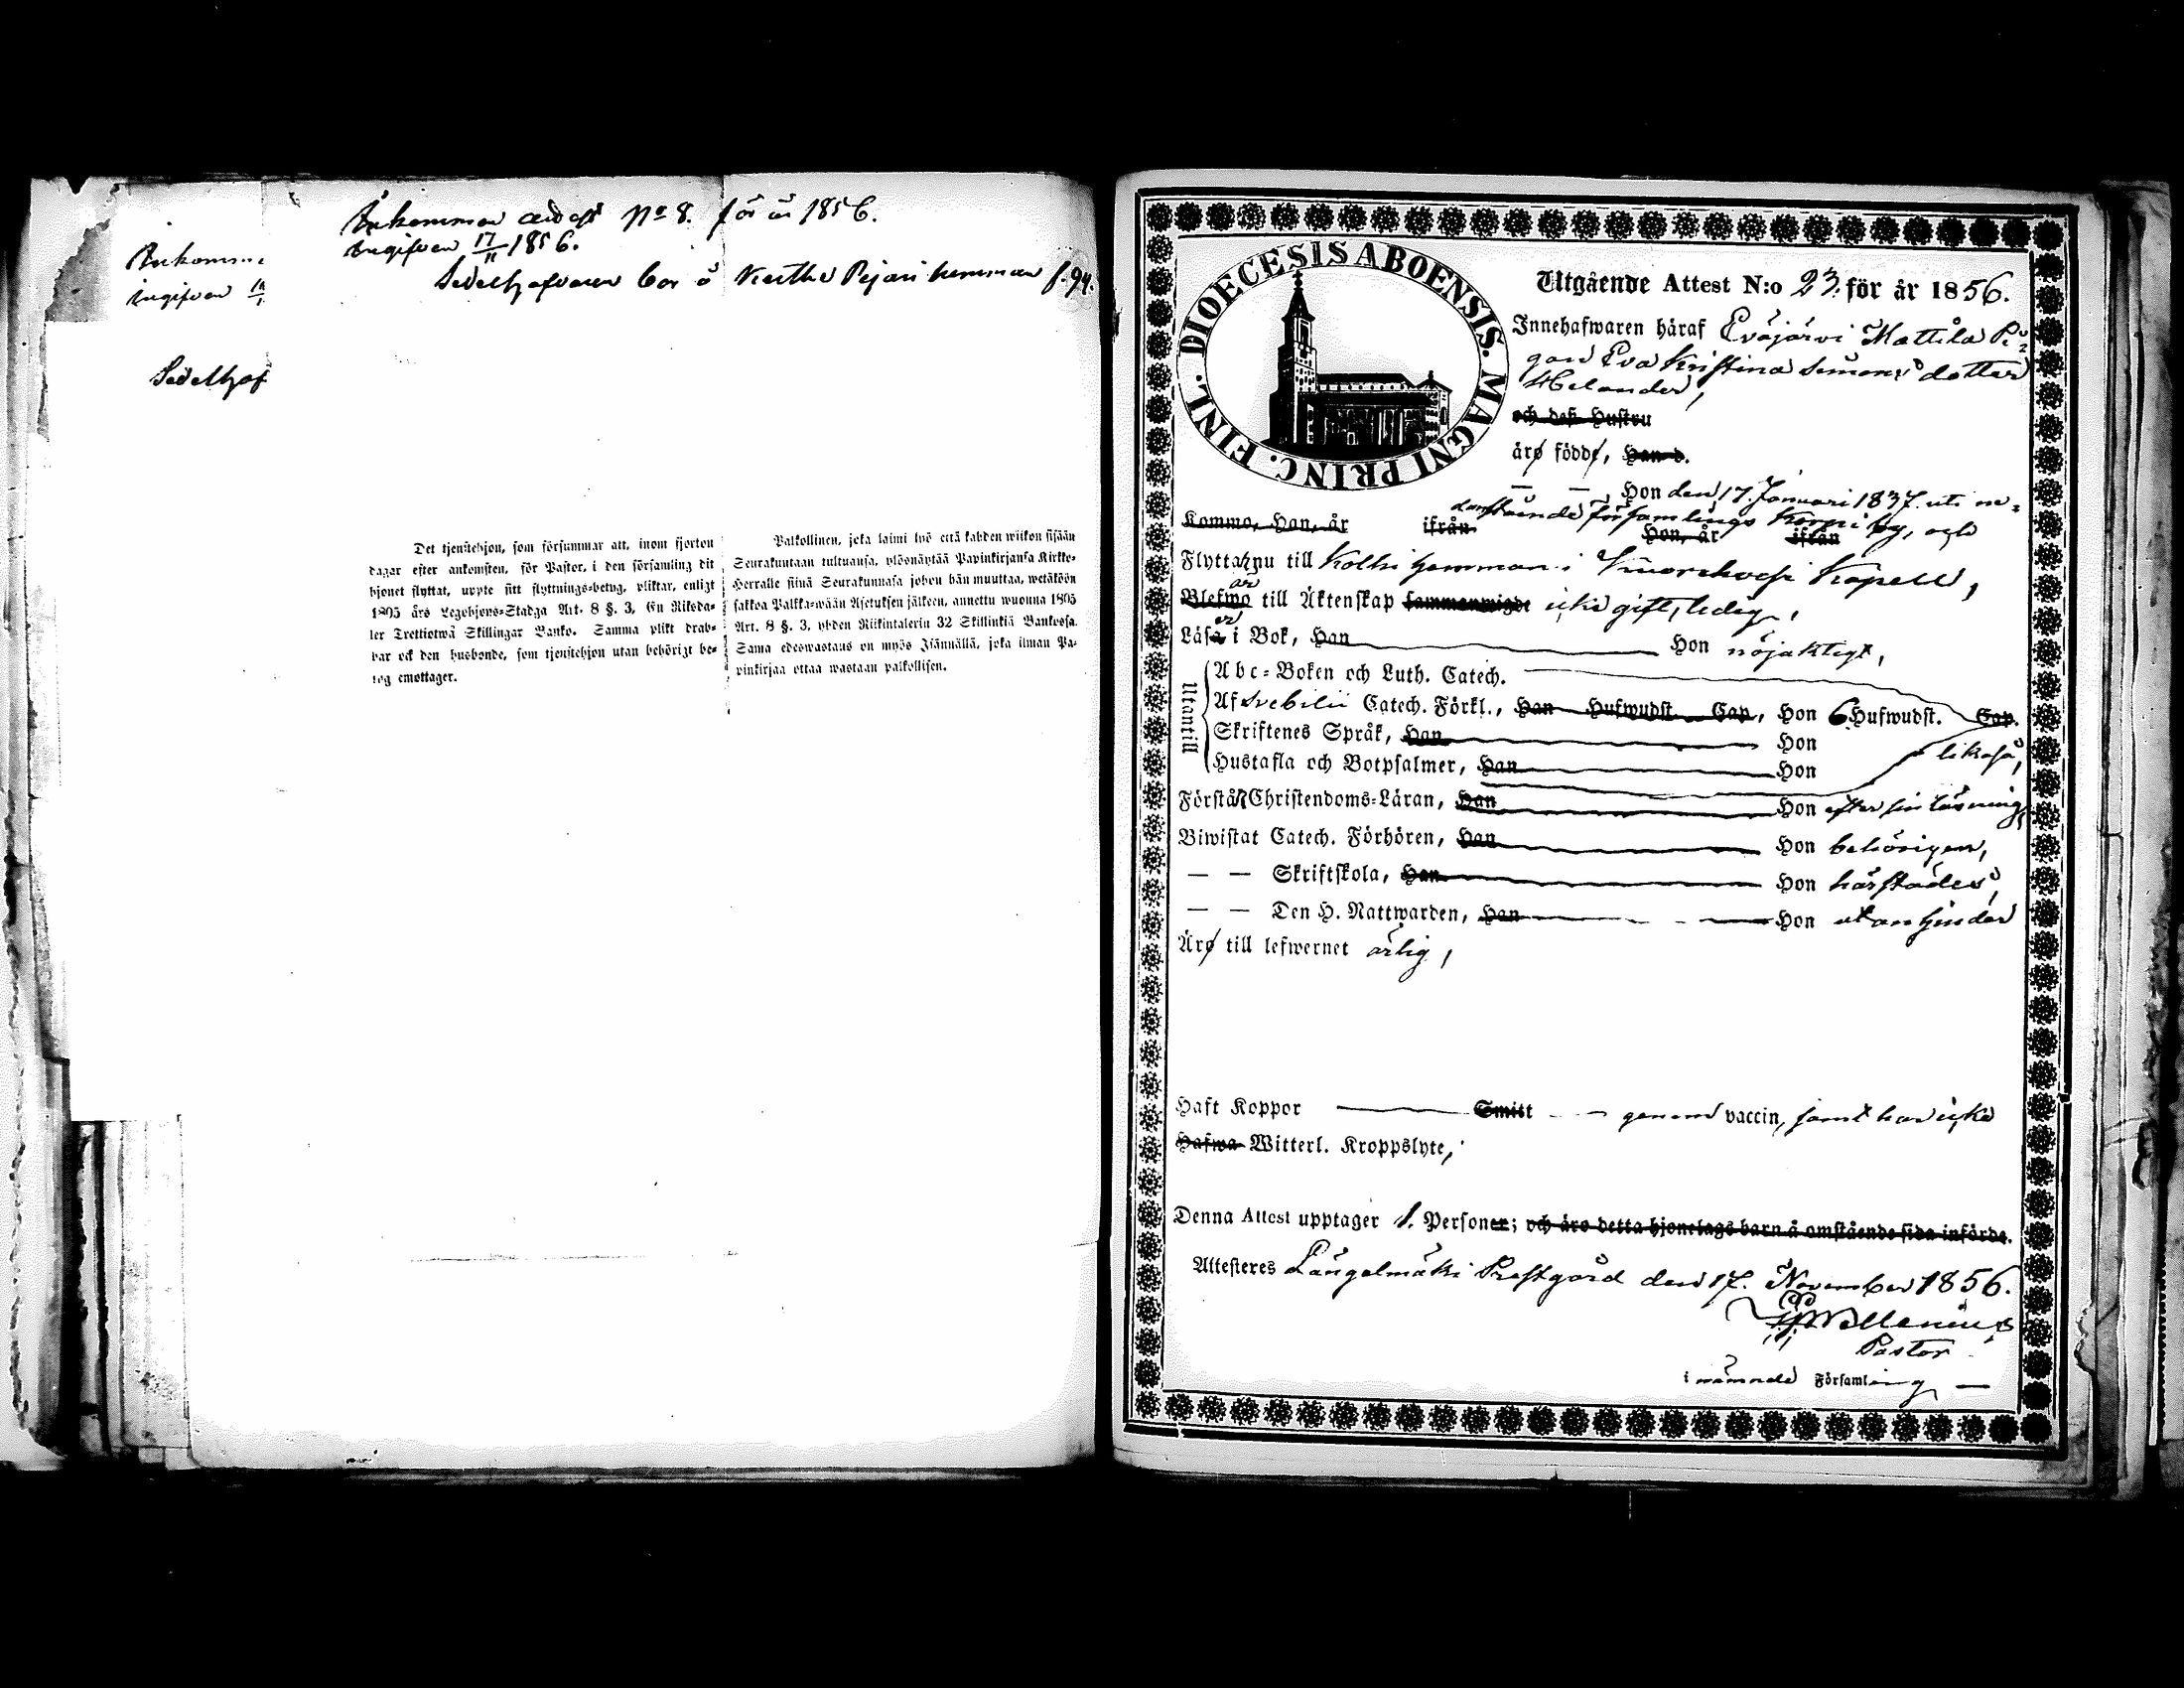 Ankommen
ingifven
Sedelhaf
Ankommen attest No 8. för år 1856.
Ingifven 17/11 1856.
Sedelhafvaren bor å Pejari hemman f. 94.
Det tjenstehjon, som försummar att, inom fjorton
dagar efter ankomsten, för Pastor, i den församling dit
hjonet flyttat, uppte sitt flyttnings-betyg, pliktar, enligt
1805 års Legohjons-Stadga Art. 8 §. 3, En Riksda-
ler Trettiotwå Skillingar Banko. Samma plikt drab-
bar ock den husbonde, som tjenstehjon utan behörigt be-
tyg emottager.
Palkollinen, joka laimi lyö että kahden wiikon sisään
Seurakuntaan tultuansa, ylösnäytää Papinkirjansa Kirkko-
Herralle siinä Seurakunnasa johon hän muuttaa, wetäköön
sakkoa Palkka-wään Asetuksen jälkeen, annettu wuonna 1805
Art. 8 §. 3, yhden Riikintalerin 32 Skillinkiä Bankossa.
Sama edeswastaus on myös Isännällä, joka ilman Pa-
pinkirjaa ottaa wastaan palkollisen.
DIOECESIS ABOENSIS. MAGNI PRINC. FINL.
Utgående Attest N:o 23 för år 1856.
Innehafwaren häraf Eväjärvi Mattila Pi-
gan Eva Kristina Simonsdotter
Helander,
och deß Hustru
äro födde, Han d.
— — Hon den 17. Januari 1837 uti ne-
danstående församlings Korpi by, och
Komma, Han, år ifrån Hon, år ifrån
Flytta nu till Kolhi hemman i Kuorehvesi Kapell,
Blefwo är till Äktenskap sammanwigde icke gift, ledig,
Läsa er i Bok, Han Hon nöjaktigt,
Utantill
Abc-Boken och Luth. Catech.
Af Svebilii Catech. Förkl., Han Hufwudst. Cap, Hon 6 Hufwudst. Cap.
Skriftenes Språk, Han Hon
likaså,
Hustafla och Botpsalmer, Han Hon
Förstår Christendoms-Läran, Han Hon efter sin läsning,
Biwistat Catech. Förhören, Han Hon behörigen,
— — Skriftskola, Han Hon härstädes,
— — Den H. Nattwarden, Han Hon utan hinder
Äro till lefwernet ärlig,
Haft Koppor Smitt genom vaccin, samt har icke
Hafwa Witterl. Kroppslyte,
Denna Attest upptager 1. Personer; och äro detta hjonelags barn å omstående sida införde.
Attesteres Längelmäki Prestgård den 17. November 1856.
Wallenius
Pastor
i nämnde Församling —